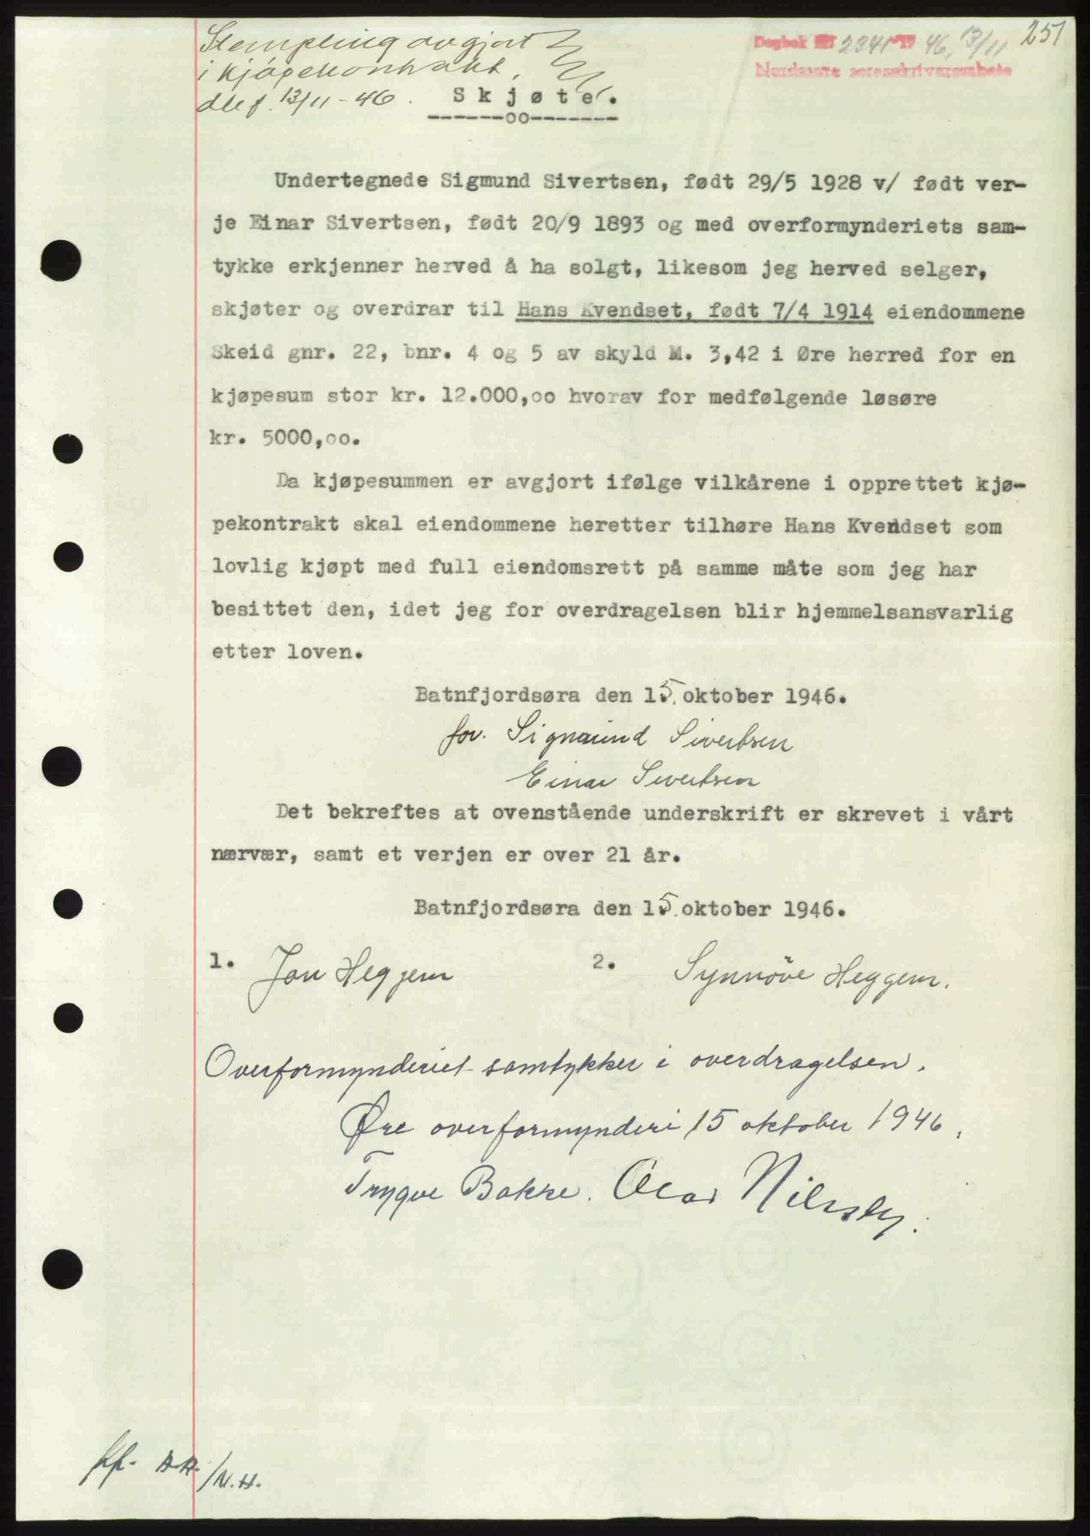 Stempling avgjort
i kjøpekontrakt,
dlef. 13/11-46.
Dagbok nr 2341 19 46, 13/11
251
Nordmøre sorenskriverembete
Skjøte.
------oo-------
Undertegnede Sigmund Sivertsen, født 29/5 1928 v/ født ver-
je Einar Sivertsen, født 20/9 1893 og med overformynderiets sam-
tykke erkjenner herved å ha solgt, likesom jeg herved selger,
skjøter og overdrar til Hans Kvendset, født 7/4 1914 eiendommene
Skeid gnr. 22, bnr. 4 og 5 av skyld M. 3,42 i Øre herred for en
kjøpesum stor kr. 12.000,oo hvorav for medfølgende løsøre
kr. 5000,oo.
Da kjøpesummen er avgjort ifølge vilkårene i opprettet kjø-
pekontrakt skal eiendommene heretter tilhøre Hans Kvendset som
lovlig kjøpt med full eiendomsrett på samme måte som jeg har
besittet den, idet jeg for overdragelsen blir hjemmelsansvarlig
etter loven.
Batnfjordsøra den 15. oktober 1946.
for. Sigmund Sivertsen
Einar Sivertsen
Det bekreftes at ovenstående underskrift er skrevet i vårt
nærvær, samt et verjen er over 21 år.
Batnfjordsøra den 15. oktober 1946.
1. Jon Heggem 2. Synnöve Heggem.
Overformynderiet samtykker i overdragelsen.
Øre overformynderi 15 oktober 1946.
Trygve Bakke. Oscar Nilssen.
/N.H.